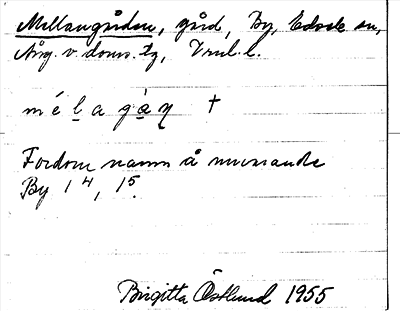 Mellangården, gård, By, Edsele sn,
Ång. v. doms. tg, Vnrl. l.
mélagàṇ †
Fordom namn å nuvarande
By 1⁴, 1⁵.
Birgitta Östlund 1955